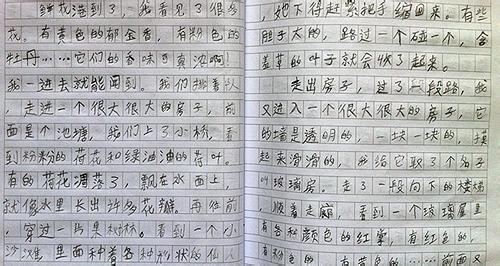 鲜花港到了，我看见了很多
花，有黄色的郁金香，有粉色的
牡丹……它们的香味可真浓啊！
我一进去就能闻到。我们排着队
，走进一个很大很大的房子，前
面是个池塘，我们上了小桥，看
到粉粉的荷花和绿油油的荷叶。
有的荷花凋落了，飘在水面上，
就像水里长出许多花瓣。再往前
，穿过一片果树林。看到一个小
沙滩，里面种着各种形状的仙人
，她下得赶紧把手缩回来。有些
胆子大的，路过一个碰一个，含
羞草的叶子就会收了起来。
走出房子，过了一段路，我
又进入一个很大很大的房子，它
的墙是透明的，一块一块的，摸
起来滑滑的，我给它取了个名字
叫玻璃房。走了一段向下的楼梯
，顺着走廊，看到一个玻璃屋里
有各种颜色的红掌，有红色的，
有白色的，有黄色的……前面又